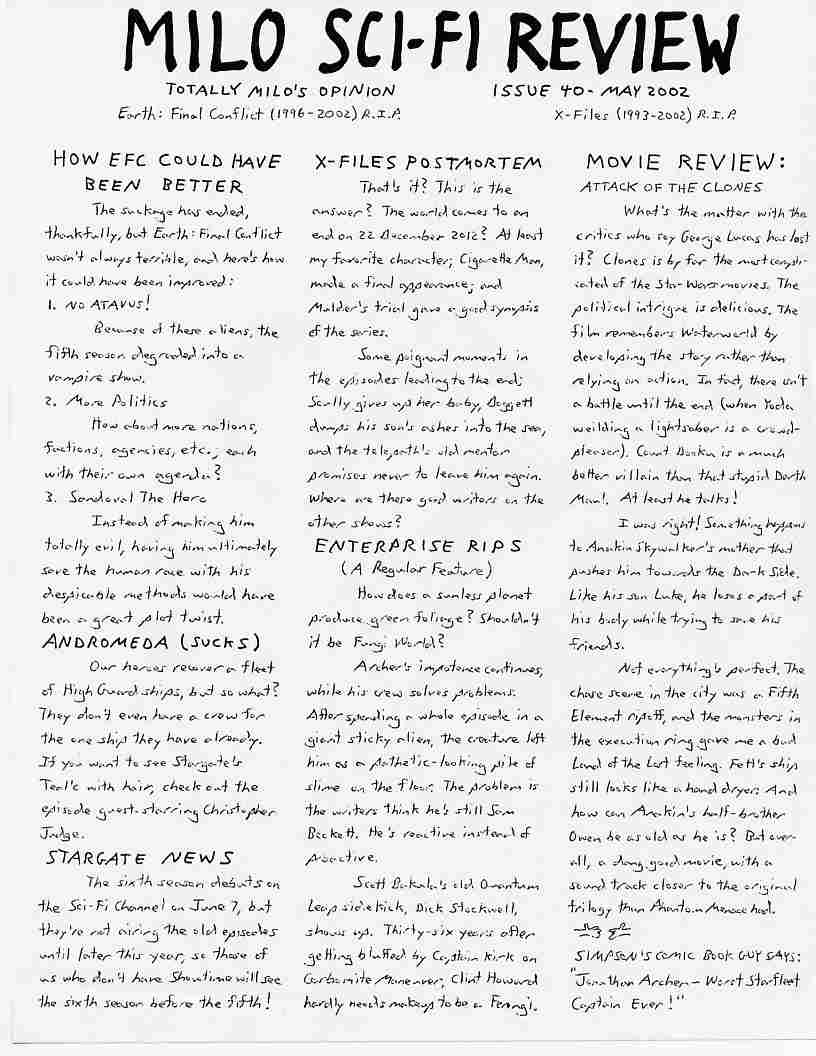 MILO SCI-FI REVIEW
TOTALLY MILO'S OPINION
ISSUE 40 - MAY 2002
Earth: Final Conflict (1996-2002) R.I.P.
X-Files (1993-2002) R.I.P.
HOW EFC COULD HAVE
BEEN BETTER
The suckage has ended,
thankfully, but Earth: Final Conflict
wasn't always terrible, and here's how
it could have been improved:
1. NO ATAVUS!
Because of these aliens, the
fifth season degraded into a
vampire show.
2. More Politics
How about more nations,
factions, agencies, etc., each
with their own agenda?
3. Sandoval The Hero
Instead of making him
totally evil, having him ultimately
save the human race with his
despicable methods would have
been a great plot twist.
ANDROMEDA (SUCKS)
Our heroes recover a fleet
of High Guard ships, but so what?
They don't even have a crew for
the one ship they have already.
If you want to see Stargate's
Teal'c with hair, check out the
episode guest-starring Christopher
Judge.
STARGATE NEWS
The sixth season debuts on
the Sci-Fi Channel on June 7, but
they're not airing the old episodes
until later this year, so those of
us who don't have Showtime will see
the sixth season before the fifth!
X-FILES POSTMORTEM
That's it? This is the
answer? The world comes to an
end on 22 December 2012? At least
my favorite character, Cigarette Man,
made a final appearance; and
Mulder's trial gave a good synopsis
of the series.
Some poignant moments in
the episodes leading to the end:
Scully gives up her baby, Doggett
dumps his son's ashes into the sea,
and the telepath's old mentor
promises never to leave him again.
Where are these good writers on the
other shows?
ENTERPRISE RIPS
(A Regular Feature)
How does a sunless planet
produce green foliage? Shouldn't
it be Fungi World?
Archer's impotence continues,
while his crew solves problems.
After spending a whole episode in a
giant sticky alien, the creature left
him as a pathetic-looking pile of
slime on the floor. The problem is
the writers think he's still Sam
Beckett. He's reactive instead of
proactive.
Scott Bakula's old Quantum
Leap sidekick, Dick Stockwell,
shows up. Thirty-six years after
getting bluffed by Captain Kirk on
Corbomite Maneuver, Clint Howard
hardly needs makeup to be a Ferengi.
MOVIE REVIEW:
ATTACK OF THE CLONES
What's the matter with the
critics who say George Lucas has lost
it? Clones is by far the most compli-
cated of the Star Wars movies. The
political intrigue is delicious. The
film remembers Waterworld by
developing the story rather than
relying on action. In fact, there isn't
a battle until the end (when Yoda
weilding a lightsaber is a crowd-
pleaser). Count Dooku is a much
better villain than that stupid Darth
Maul. At least he talks!
I was right! Something happens
to Anakin Skywalker's mother that
pushes him towards the Dark Side.
Like his son Luke, he loses a part of
his body while trying to save his
friends.
Not everything's perfect. The
chase scene in the city was a Fifth
Element ripoff, and the monsters in
the execution ring gave me a bad
Land of the Lost feeling. Fett's ship
still looks like a hand dryer. And
how can Anakin's half-brother
Owen be as old as he is? But over-
all, a dang good movie, with a
sound track closer to the original
trilogy than Phantom Menace had.
SIMPSON'S COMIC BOOK GUY SAYS:
"Jonathan Archer - Worst Starfleet
Captain Ever!"